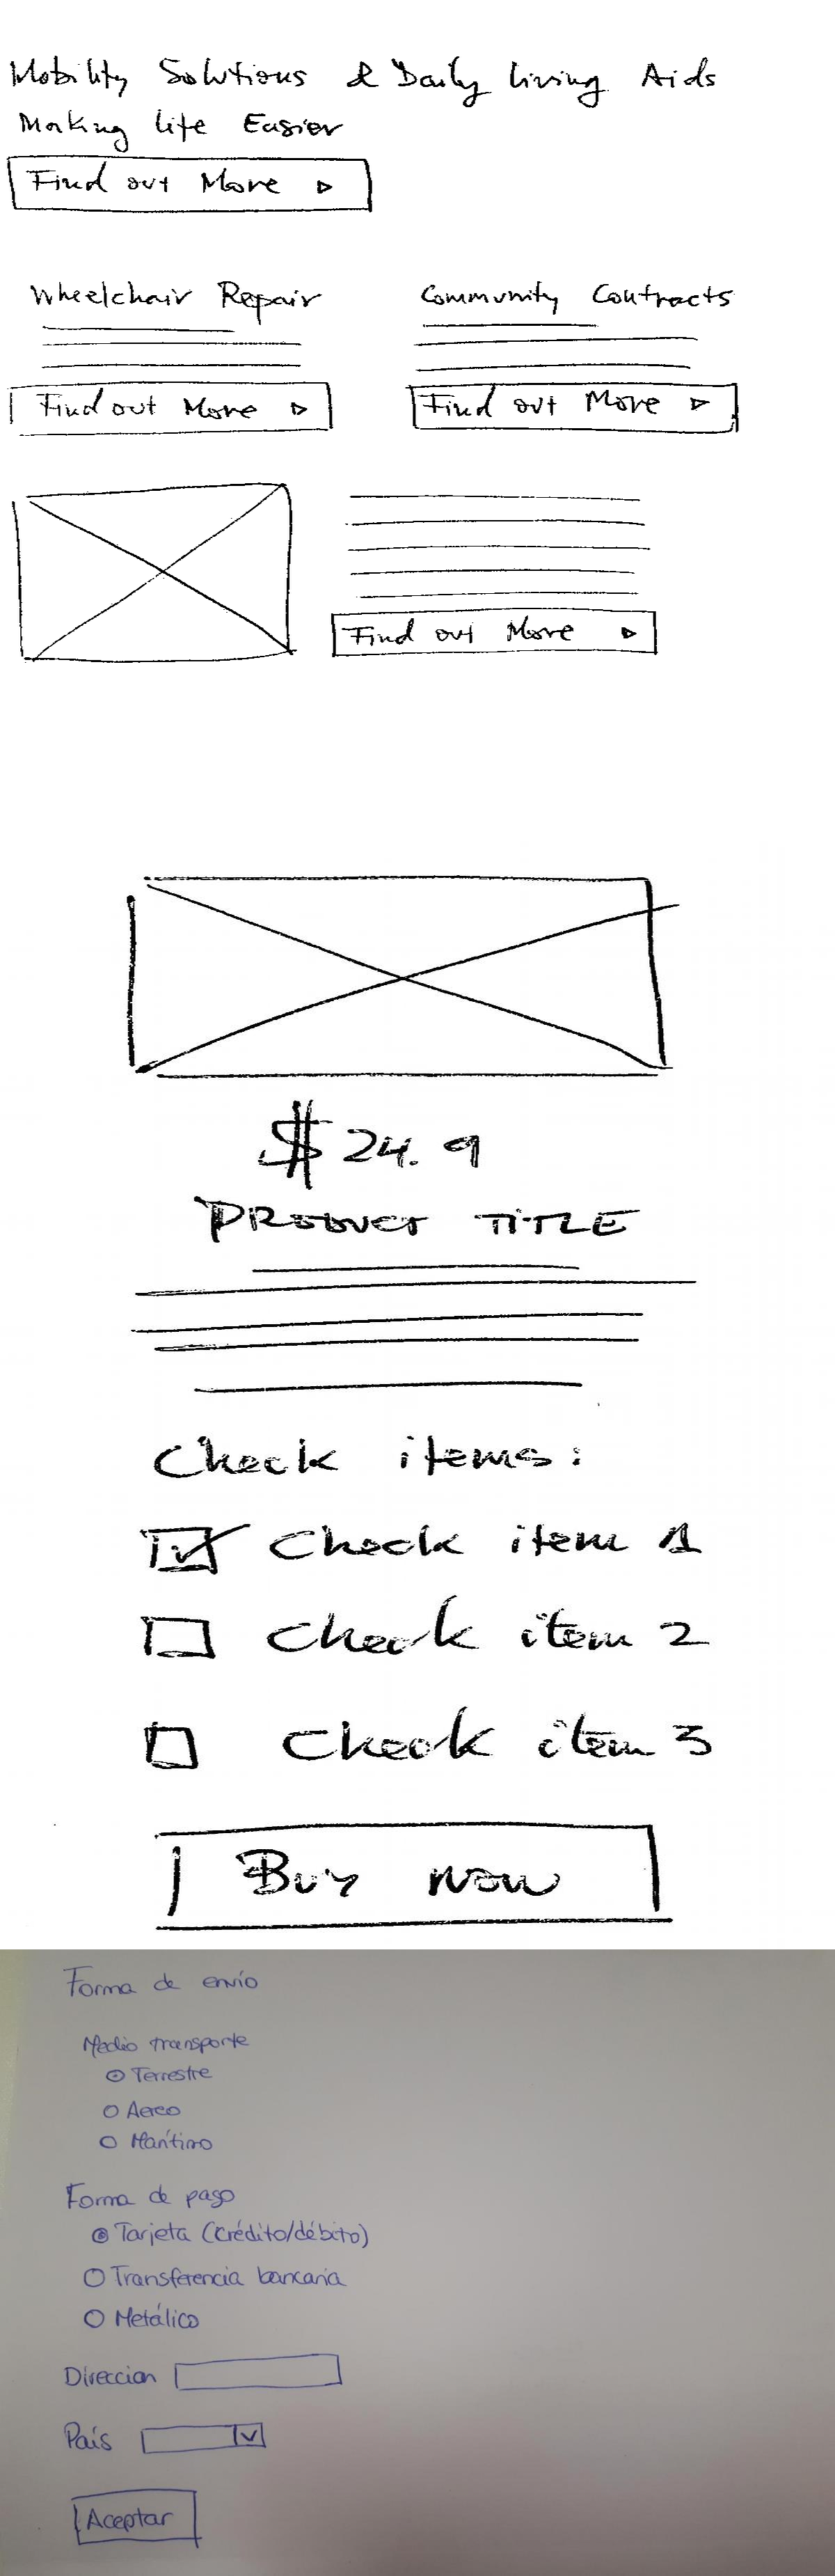 Mobility Solutions & Daily Living Aids
Making life Easier
Find out More
Wheelchair Repair
Community Contracts
Find out More
Find out More
Find out More
$ 24.9
PRODUCT TITLE
Check items:
Check item 1
Check item 2
Check item 3
Buy now
Forma de envío
Medio transporte
Terrestre
Aereo
Marítimo
Forma de pago
Tarjeta (crédito/débito)
Transferencia bancaria
Metálico
Direccion
País
Aceptar